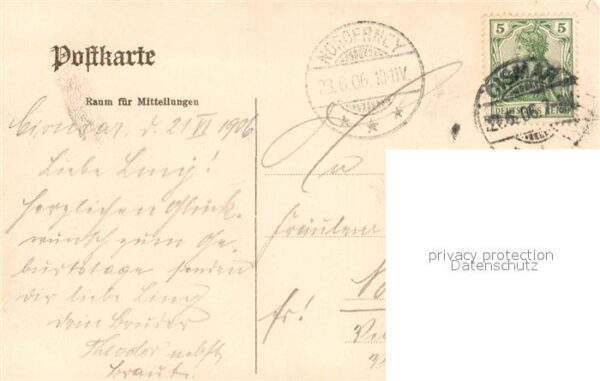 Postkarte
Raum für Mitteilungen
NORDERNEY
23.6.06. 10-11V.
5 5
CISMAR
21.6.06.
Cismar, d. 21 VI 1906
Liebe Liny!
Herzlichen Glück-
wunsch zum Ge-
burtstage senden
dir liebe Liny
dein Bruder
Theodor nebst
Braut.
An
Fräulein
Fr!
privacy protection
Datenschutz